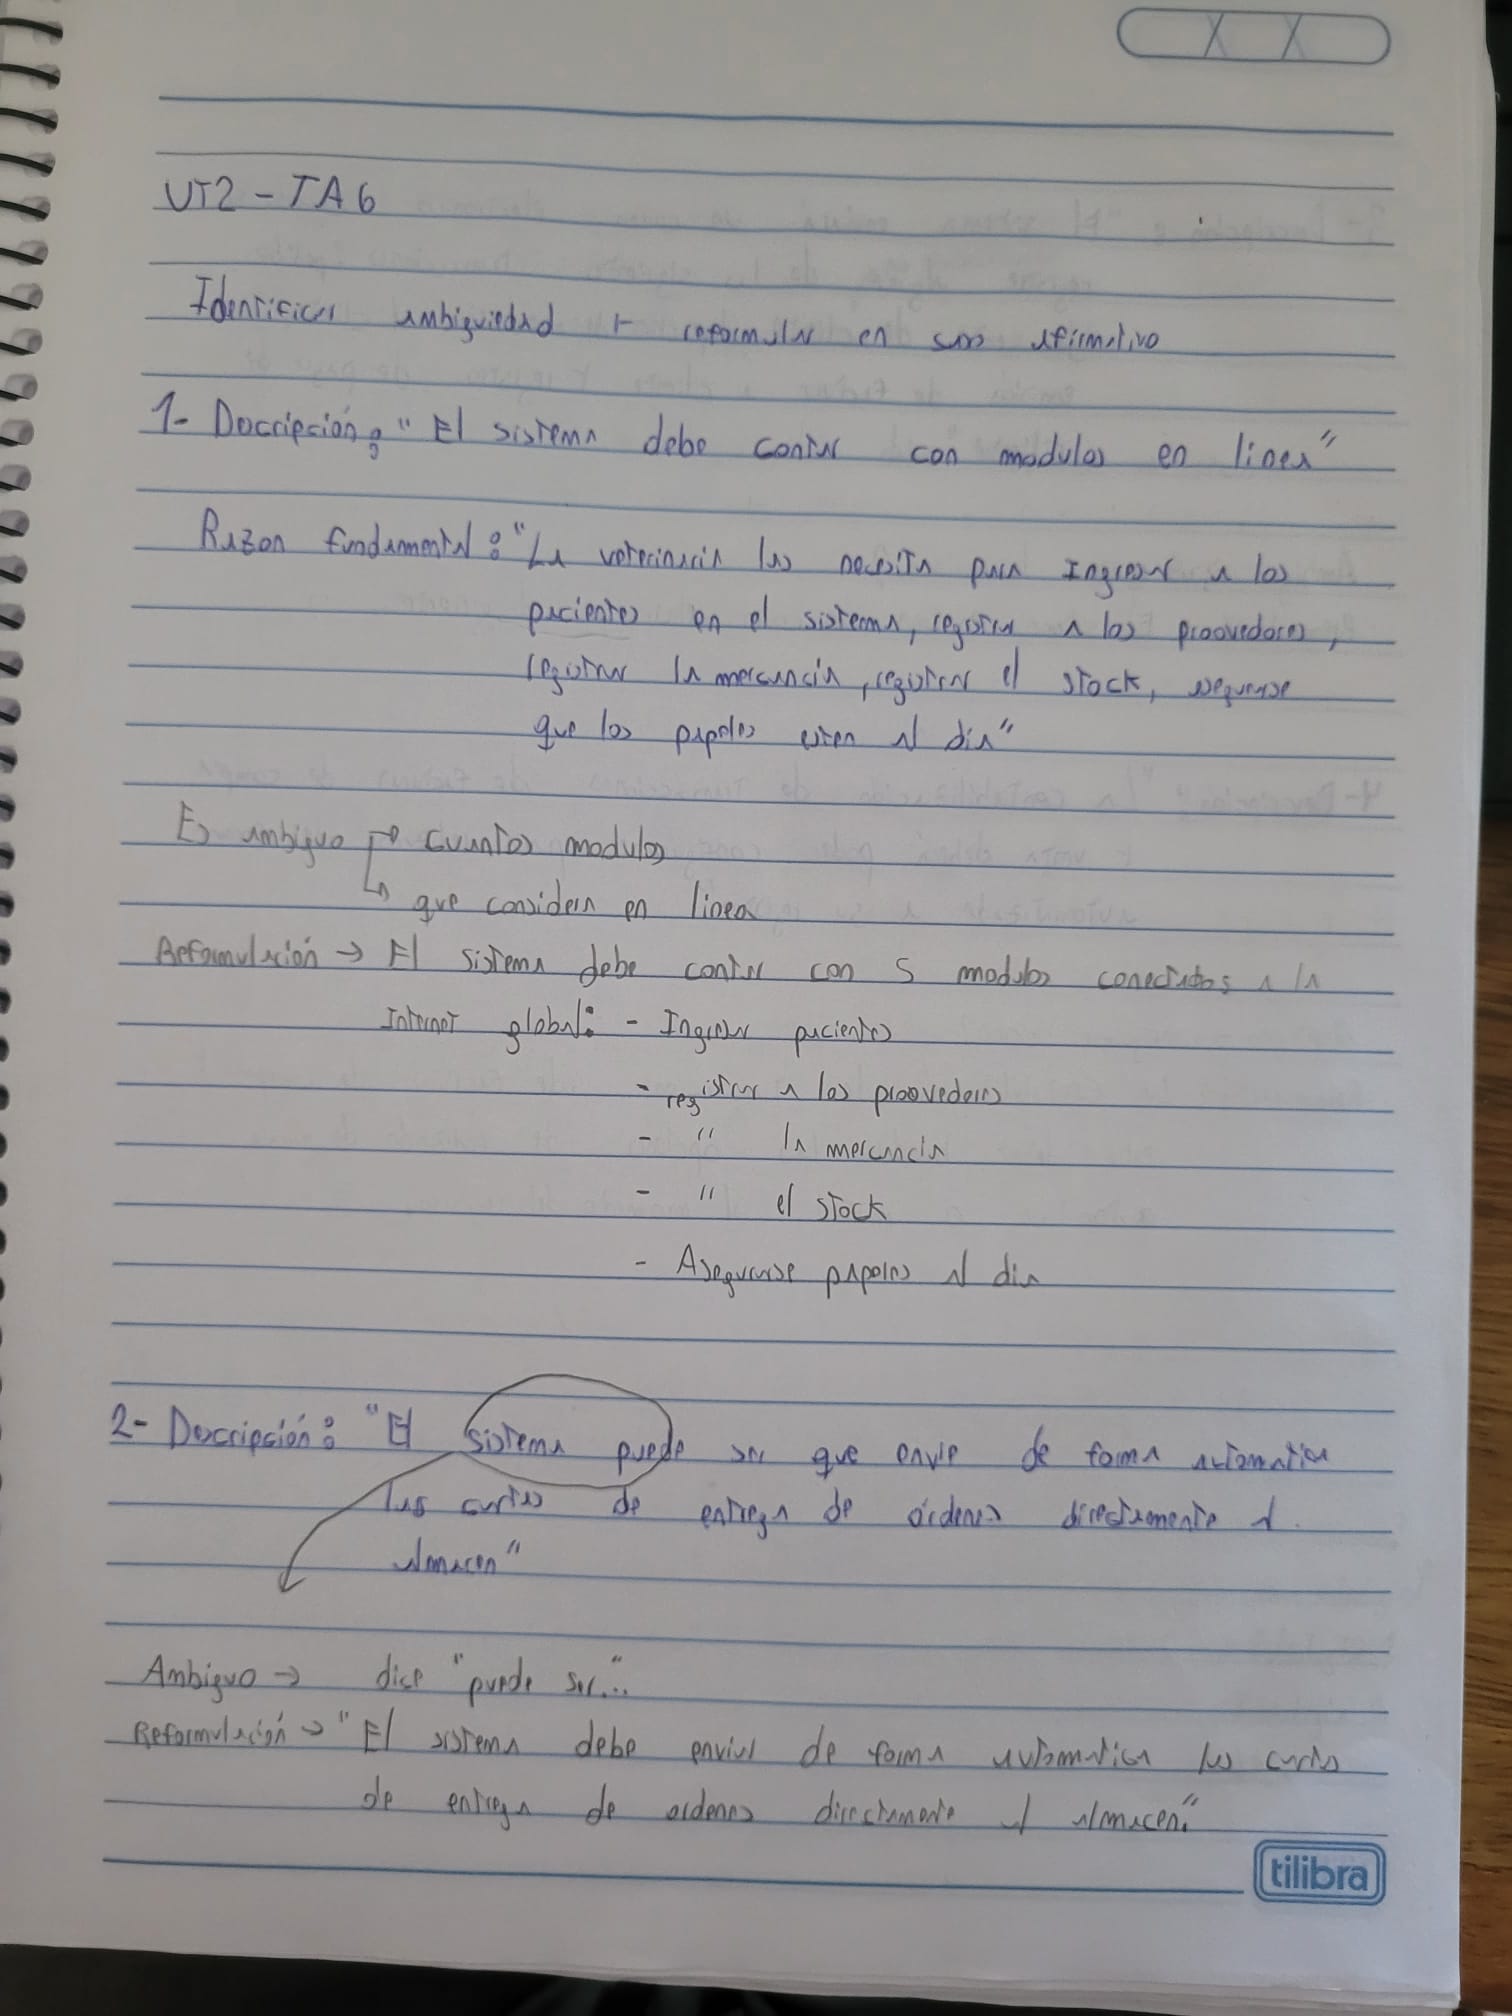 UT2 - TA6
Identificar ambigüedad + reformular en caso afirmativo
1- Descripción: "El sistema debe contar con modulos en linea"
Razon fundamental: "La veterinaria los necesita para Ingresar a los
pacientes en el sistema, registrar a los proovedores,
registrar la mercancia, registrar el stock, asegurarse
que los papeles esten al dia"
Es ambiguo → cuantos modulos
↳ que considera en linea
Reformulación → El sistema debe contar con 5 modulos conectados a la
Internet global: - Ingresar pacientes
- registrar a los proovedores
- " la mercancia
- " el stock
- Asegurarse papeles al dia
2- Descripción: "El sistema puede ser que envie de forma automatica
las cartas de entrega de órdenes directamente al
almacen"
Ambiguo → dice "puede ser..."
Reformulación → "El sistema debe enviar de forma automatica las cartas
de entrega de ordenes directamente al almacen."
tilibra